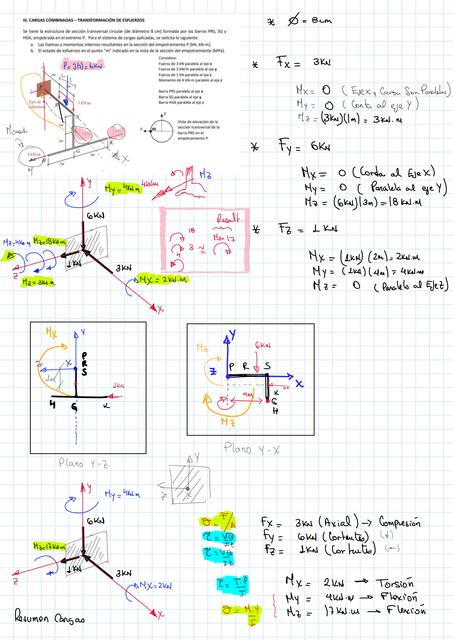 III. CARGAS COMBINADAS – TRANSFORMACIÓN DE ESFUERZOS
Se tiene la estructura de sección transversal circular (de diámetro 8 cm) formada por las barras PRS, SG y
HGK, empotrada en el extremo P. Para el sistema de cargas aplicadas, se solicita lo siguiente:
a. Las fuerzas y momentos internos resultantes en la sección del empotramiento P (kN, kN m).
b. El estado de esfuerzo en el punto "m" indicado en la vista de la sección del empotramiento (MPa).
Considere:
Fuerza de 3 kN paralela al eje x
Fuerza de 3 kN/m paralela al eje y
Fuerza de 1 kN paralela al eje z
Momento de 4 kN-m paralelo al eje z
Barra PRS paralela al eje x
Barra SG paralela al eje y
Barra HGK paralela al eje z
Vista de elevación de la
sección transversal de la
barra PRS en el
empotramiento P
* Ø = 8cm
* Fx = 3KN
Mx = 0 (Eje x y Carga Son Paralelas)
My = 0 (Corta al eje Y)
Mz = (3KN)(1m) = 3KN.m
* Fy = 6KN
Mx = 0 (Corta al Eje X)
My = 0 (Paralela al eje Y)
Mz = (6KN)(3m) = 18KN.m
* Fz = 1KN
Mx = (1KN)(2m) = 2KN.m
My = (1KN)(4m) = 4KN.m
Mz = 0 (Paralela al Eje Z)
Y
My = 4KN.m
4KN.m
Mz
6KN
Mz=4KN.m
Mz=18KN.m
1KN
3KN
Z
Mz=3KN.m
Mx = 2KN.m
X
Result.
18
3
Mz=17
4
Mx
Y
X
P
R
S
1KN
H
G
K
Plano Y-Z
Y
6KN
Mz
Z
P R S
X
4m
K
G
H
Mz
Plano Y-X
Y
Y
My=4KN.m
6KN
Mz=17KN.m
1KN
3KN
Z
Mx=2KN
X
Resumen Cargas
Fx = 3KN (Axial) → Compresión
Fy = 6KN (Cortante)
Fz = 1KN (Cortante)
Mx = 2KN → Torsión
My = 4KN.m → Flexión
Mz = 17KN.m → Flexión